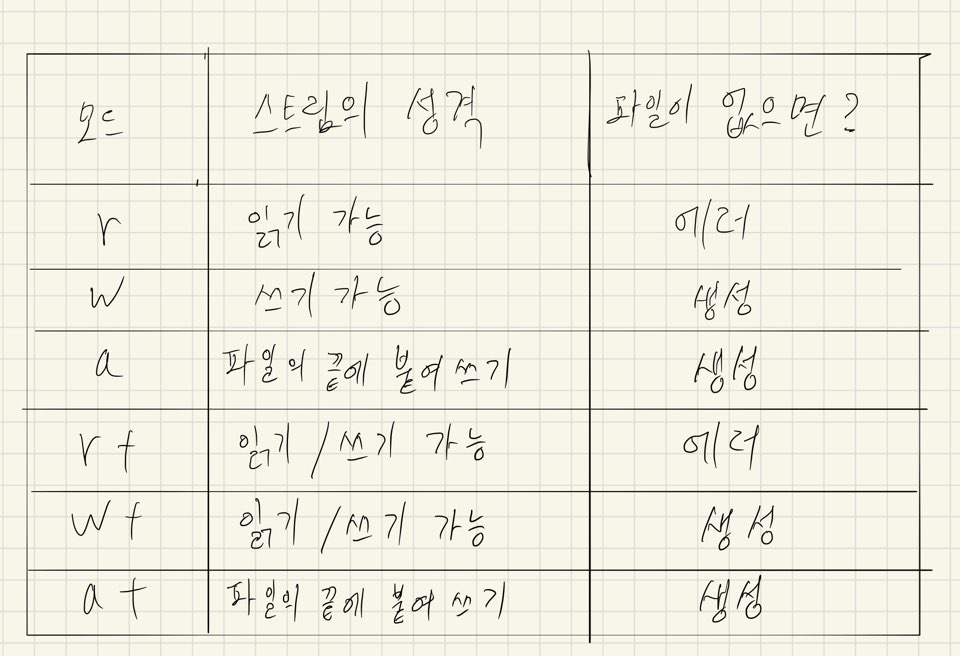 모드 스트림의 성격 파일이 없으면?
r 읽기 가능 에러
w 쓰기 가능 생성
a 파일의 끝에 붙여쓰기 생성
r+ 읽기/쓰기 가능 에러
w+ 읽기/쓰기 가능 생성
a+ 파일의 끝에 붙여쓰기 생성